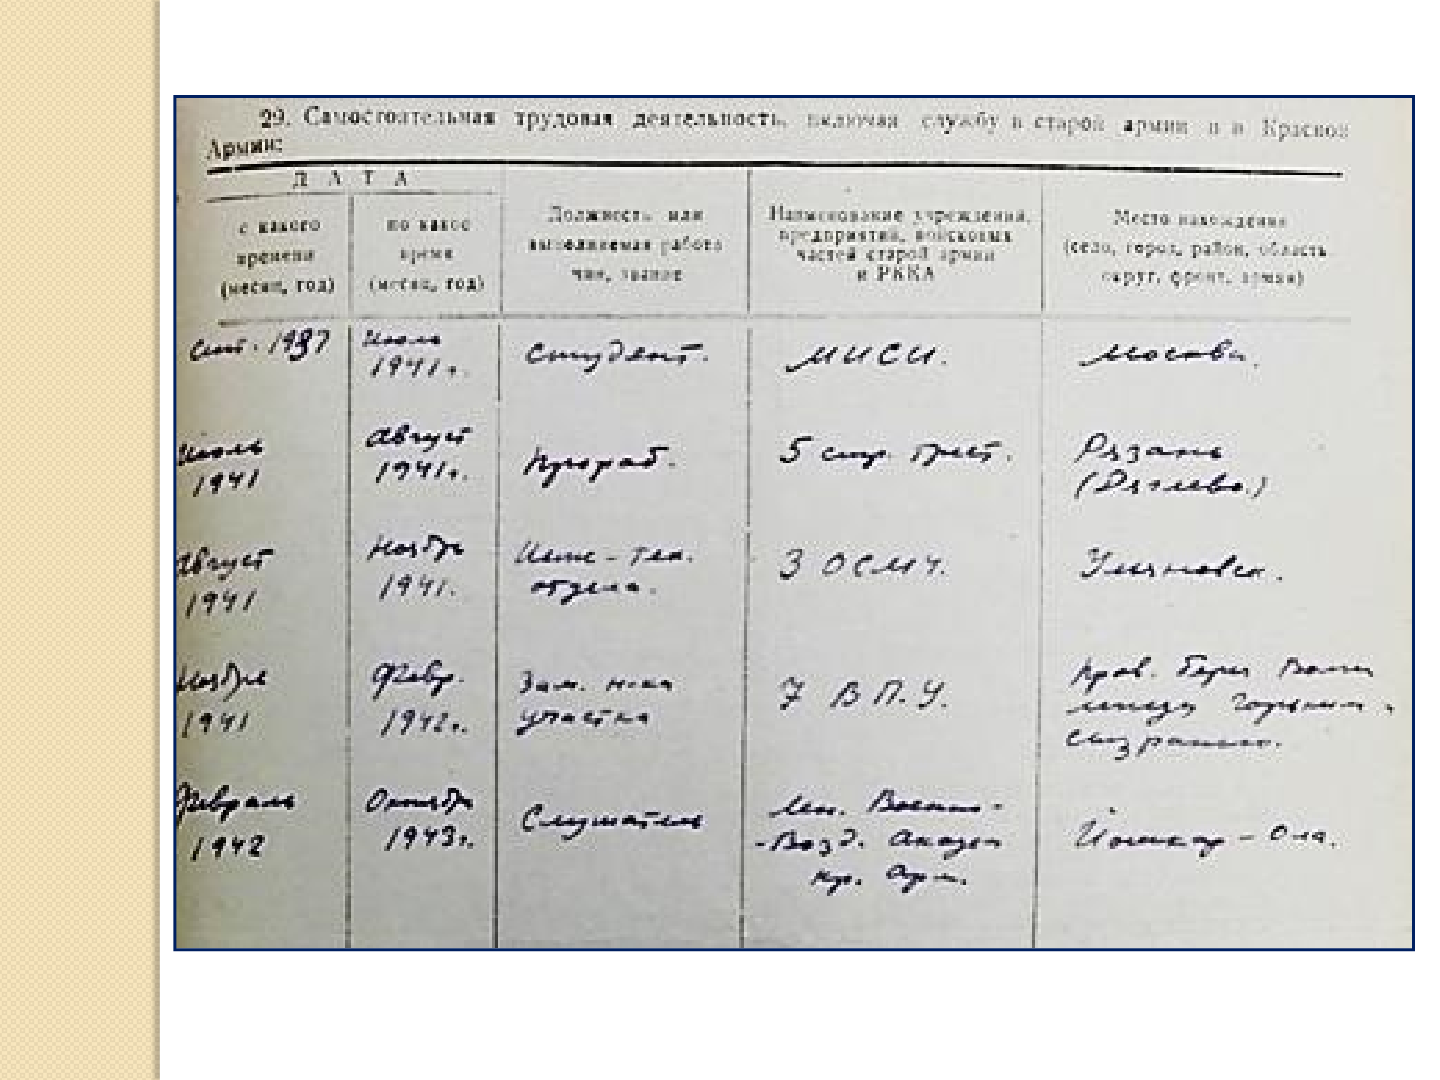 29. Самостоятельная трудовая деятельность, включая службу в старой армии и в Красной
Армии:
ДАТА
с какого
времени
(месяц, год)
по какое
время
(месяц, год)
Должность или
выполняемая работа
чин, звание
Наименование учреждений,
предприятий, войсковых
частей старой армии
и РККА
Место нахождения
(село, город, район, область
округ, фронт, армия)
Сент. 1937
Июль
1941 г.
Студент.
МИСИ.
Москва.
Июль
1941
Август
1941г.
Прораб.
5 стр. трест.
Рязань
(Дягилево.)
Август
1941
Ноябрь
1941.
Инж - тех.
отдела.
3 ОСМЧ.
Ульяновск.
Ноябрь
1941
Февр.
1942г.
Зам. н-ка
участка
7 В П. У.
Прав. берег Волги
между Горьким и
Сызранью.
Февраль
1942
Октябрь
1943г.
Слушатель
Лен. Военно-
-Возд. Академ
Кр. Арм.
Йошкар-Ола.